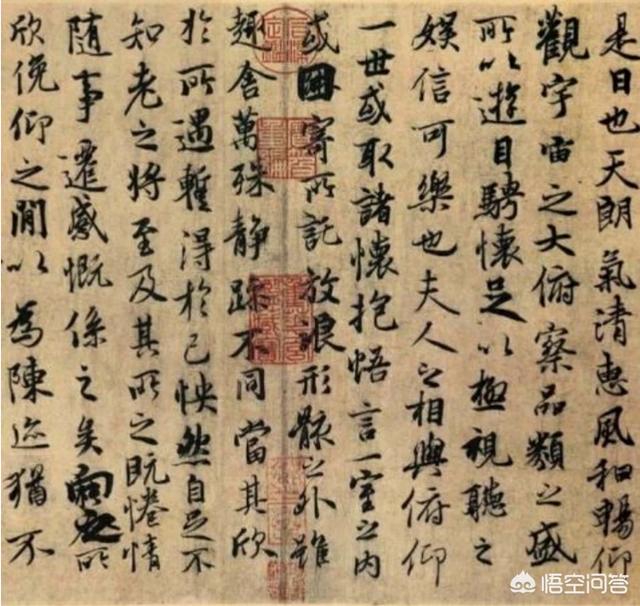 是日也天朗氣清惠風和暢仰
觀宇宙之大俯察品類之盛
所以遊目騁懷足以極視聽之
娛信可樂也夫人之相與俯仰
一世或取諸懷抱悟言一室之內
或因寄所託放浪形骸之外雖
趣舍萬殊靜躁不同當其欣
於所遇暫得於己怏然自足不
知老之將至及其所之既惓情
隨事遷感慨係之矣向之所
欣俛仰之閒以為陳迹猶不
悟空问答